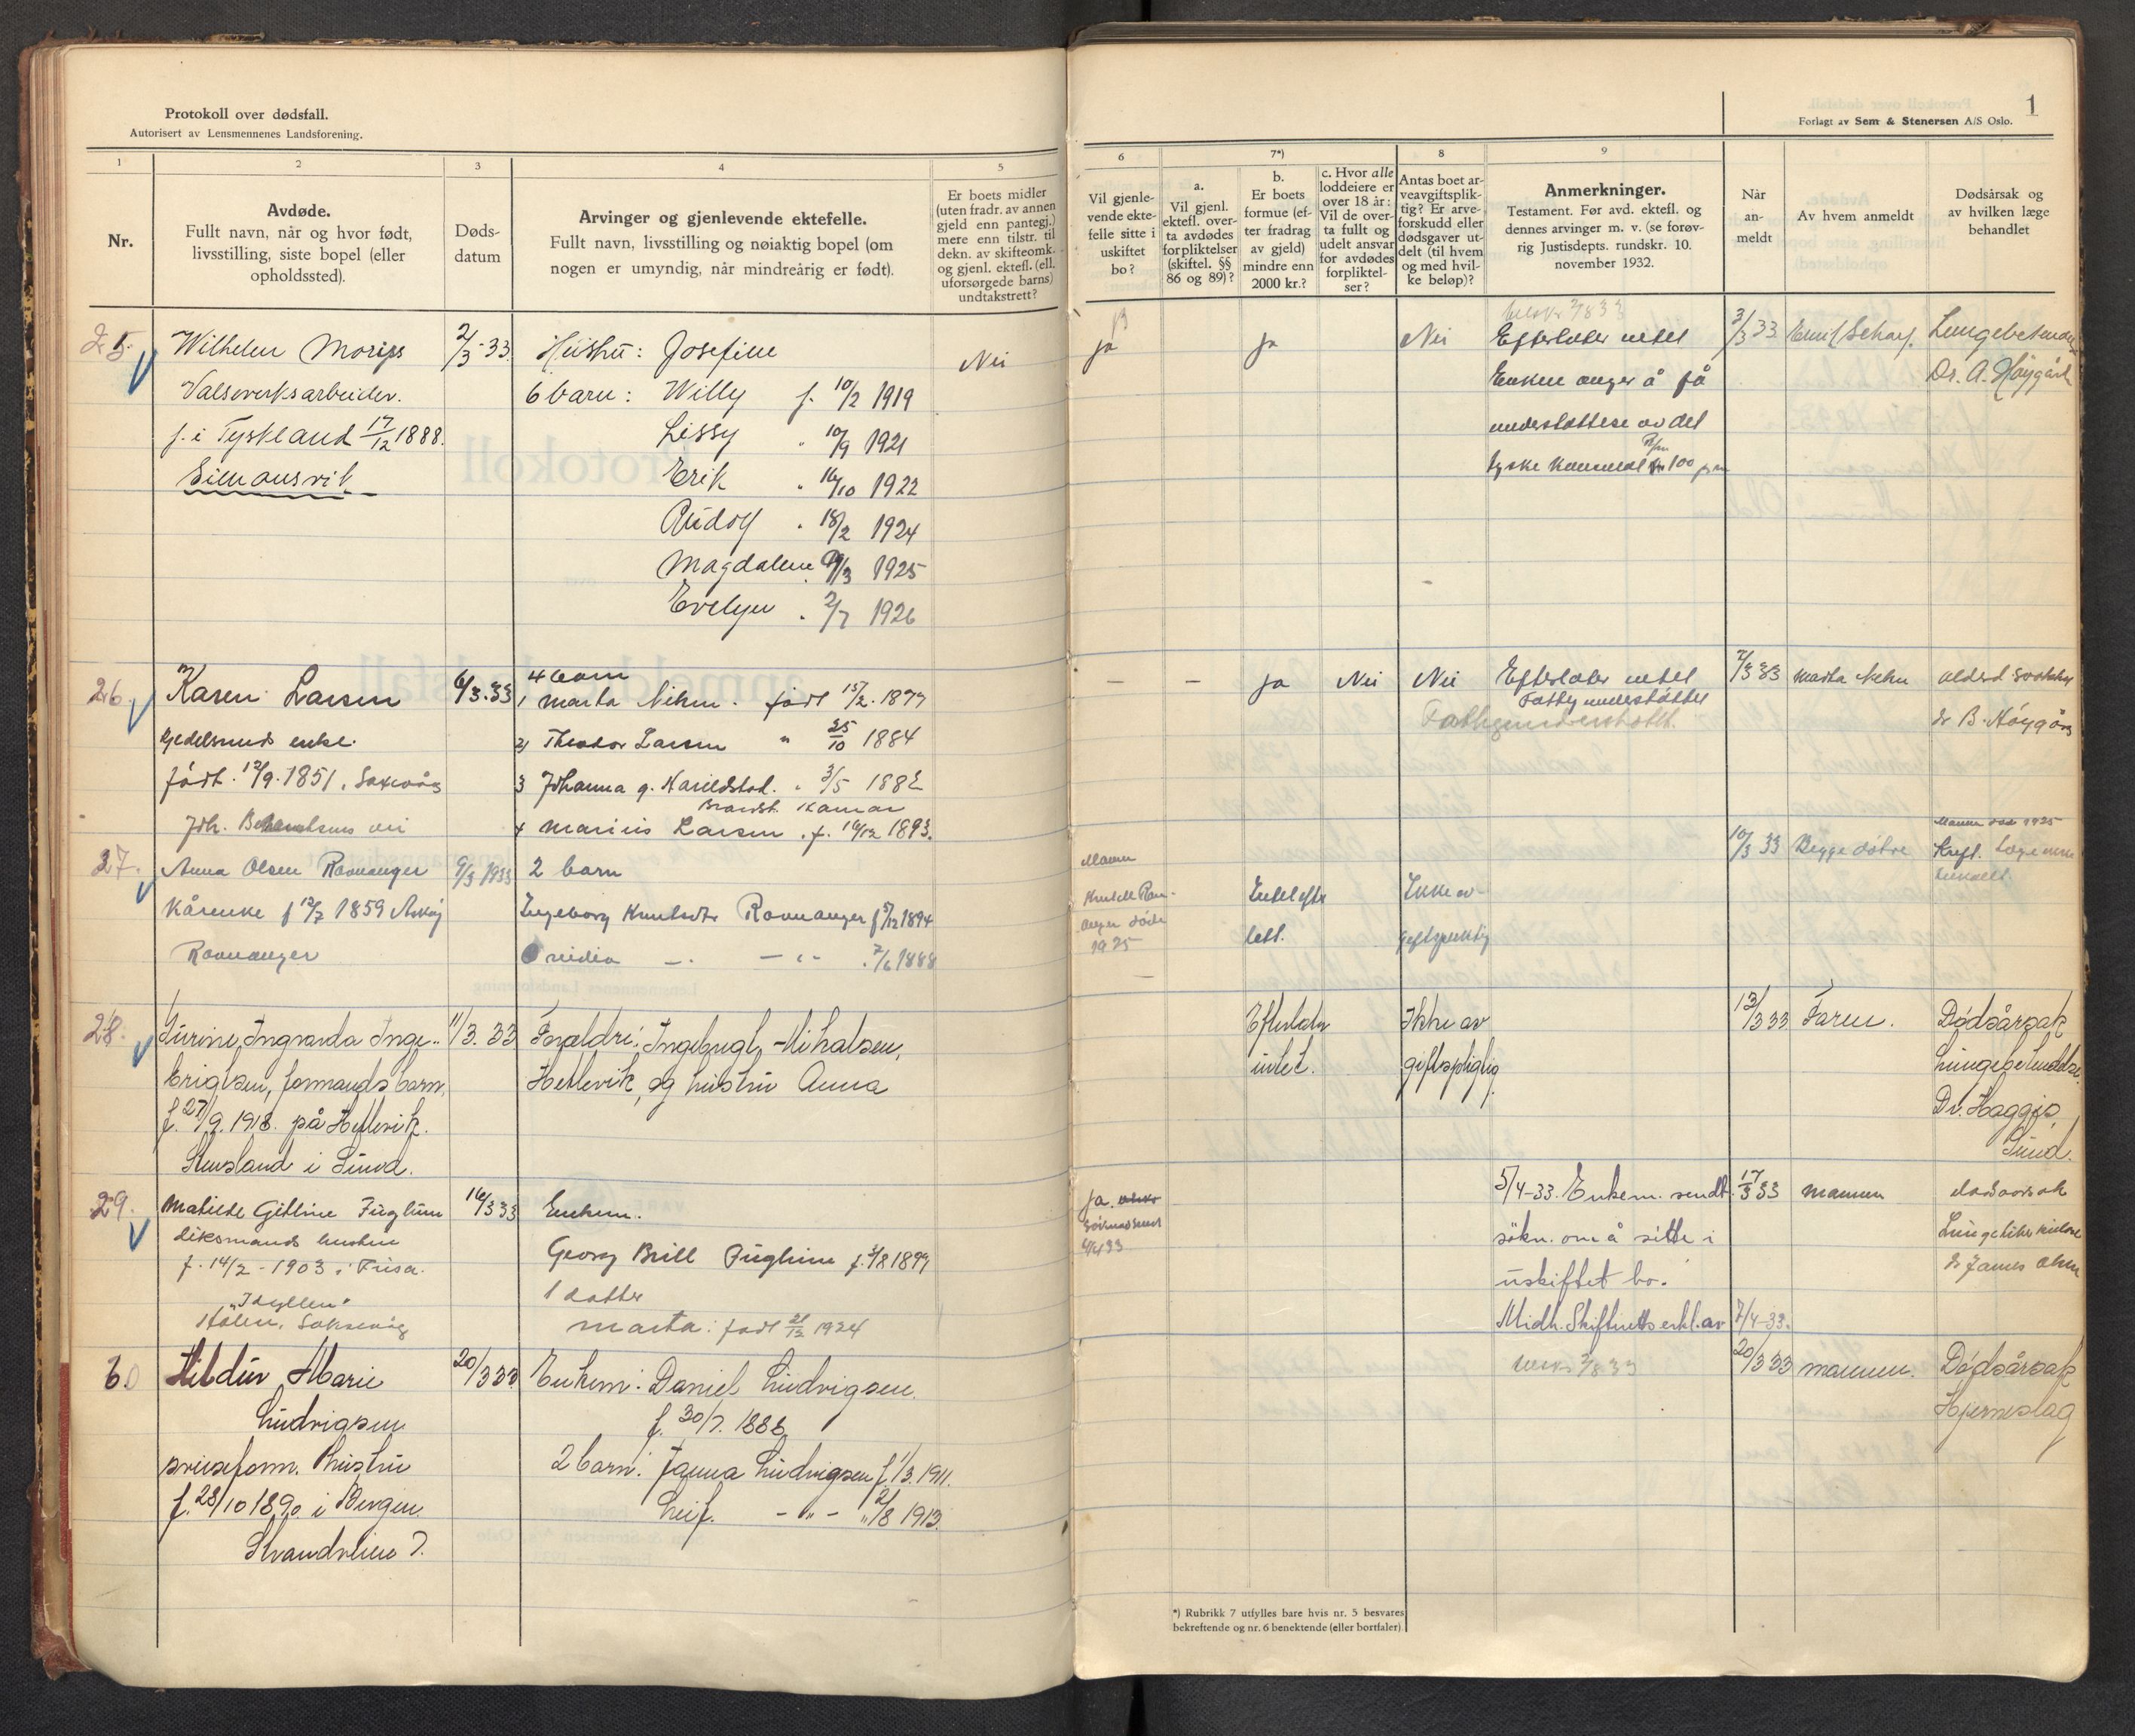 Protokoll over dødsfall.
Autorisert av Lensmennenes Landsforening.
1
Forlagt av Sem & Stenersen A/S Oslo.
1
2
3
4
5
6
7*)
8
9
Nr.
Avdøde.
Fullt navn, når og hvor født,
livsstilling, siste bopel (eller
opholdssted).
Døds-
datum
Arvinger og gjenlevende ektefelle.
Fullt navn, livsstilling og nøiaktig bopel (om
nogen er umyndig, når mindreårig er født).
Er boets midler
(uten fradr. av annen
gjeld enn pantegj.)
mere enn tilstr. til
dekn. av skifteomk.
og gjenl. ektefl. (ell.
uforsørgede barns)
undtakstrett?
Vil gjenle-
vende ekte-
felle sitte i
uskiftet
bo?
a.
Vil gjenl.
ektefl. over-
ta avdødes
forpliktelser
(skiftel. §§
86 og 89)?
b.
Er boets
formue (ef-
ter fradrag
av gjeld)
mindre enn
2000 kr.?
c. Hvor alle
loddeiere er
over 18 år:
Vil de over-
ta fullt og
udelt ansvar
for avdødes
forpliktel-
ser?
Antas boet ar-
veavgiftsplik-
tig? Er arve-
forskudd eller
dødsgaver ut-
delt (til hvem
og med hvil-
ke beløp)?
Anmerkninger.
Testament. Før avd. ektefl. og
dennes arvinger m. v. (se forøv-
rig Justisdepts. rundskr. 10.
november 1932.
Når
an-
meldt
Av hvem anmeldt
Dødsårsak og
av hvilken læge
behandlet
25.
Wilhelm Morips
Valseverksarbeider.
f. i Tyskland 17/12 1888.
Simonsvik
2/3-33.
Hustru: Josefine
6 barn: Willy f. 10/2 1919
Lissy " 10/9 1921
Erik " 16/10 1922
Rudolf " 18/2 1924
Magdalene 1925
Evelyn " 2/7 1926
Nei
ja
ja
Nei
2/8 33
Efterlater intet
Enken anger å få
understøttese av det
tyske 100
3/3 33
Emil Scharf.
Lungebetendelse
Dr. A. Høygård
26.
Karen Larsen
enke.
født. 12/9. 1851.
Joh.
6/3.33
4 barn
1 Marta Nehm. født 15/2. 1877
2 Theodor Larsen " 25/10 1884
3 Johanna g. Karieldstad. " 3/5 188
4 Marius Larsen. f. 16/12 1893.
–
–
ja
Nei
Nei
Efterlater intet
Fattigunderstøttet
Fattigunderstøttet.
7/3 33
Marta Nehm
alderdsvakhet
dr B. Høygård
27.
Anna Olsen Ravnanger
Kårenke f 12/7 1859 Askøy
Ravnanger
9/3 1933
2 barn
Ingeborg Knutsdtr Ravnanger f 5/12 1894
7/6 1888
Mannen
Knut
anger døde
1925
—
Intet efter
latt.
Ikke av-
giftspliktig
10/3 33
Begge døtre
Mannen død 1925
Kreft. Læge
28.
Surine Ingvarda Inge-
brigtsen, formands barn,
f. 27/9. 1918. på Hellevik.
Stensland i Sund.
11/3. 33
Foreldre: Ingebrigt Mikalsen,
Hellevik, og hustru Anna
Efterlater
intet.
Ikke av
giftspligtig.
13/3 33
Faren.
Dødsårsak
Lungebetendelse.
Dr. Hagges,
Sund.
29.
Matilde Gitline Fuglum
diksmands hustru
f. 14/2 - 1903 i Fusa.
"Idyllen"
16/3 33
Enkem.
Georg Brill Fuglum f. 1/8 1899
1 datter
Marta: født 21/12 1924
ja.
Søknad sendt
5/4-33. Enkem. sendt
søkn. om å sitte i
uskiftet bo.
Midh. Skifteretts erkl. av 7/4-33.
17/3 33
mannen
dødsårsak
dr James Olsen
30
Hildur Marie
Ludvigsen
hustru
f. 28/10 1890 i Bergen.
Strandveien 7.
20/3 33
Enkem: Daniel Ludvigsen.
f. 30/7. 1888
2 barn: Janna Ludvigsen f. 1/3. 1911.
Leif. — " — " 2/8 1913.
2/8 33
20/3 33
mannen.
Dødsårsak
Hjerneslag
*) Rubrikk 7 utfylles bare hvis nr. 5 besvares
bekreftende og nr. 6 benektende (eller bortfaler)